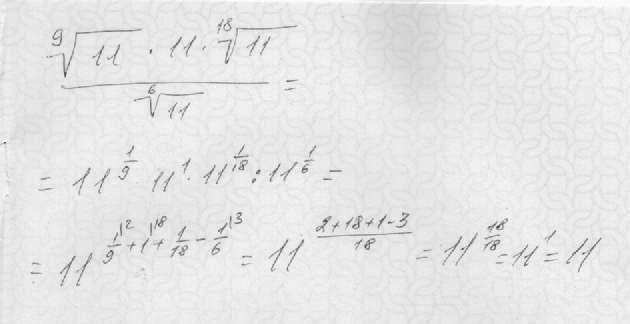 ⁹√11 · 11 · ¹⁸√11 / ⁶√11 =
= 11^(1/9) · 11^1 · 11^(1/18) : 11^(1/6) =
= 11^(1/9^(\2) + 1^(\18) + 1/18 − 1/6^(\3)) = 11^((2+18+1−3)/18) = 11^(18/18) = 11^1 = 11